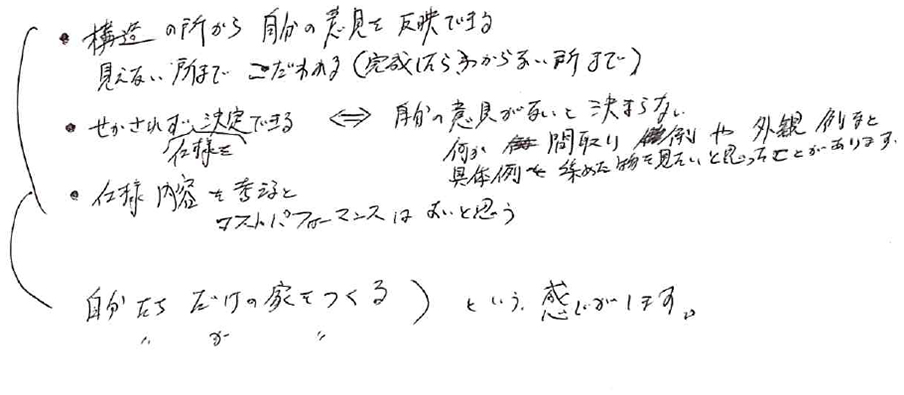 ・構造の所から自分の意見を反映できる
見えない所までこだわれる(完成したらわからない所まで)
・せかされず、決定できる ⇔ 自分の意見がないと決まらない
仕様を 何か 間取り 例 や 外観 例など
具体例を集めた物を見たいと思ったことがあります。
・仕様内容を考えると
コストパフォーマンスはよいと思う
自分たちだけの家をつくる) という感じがします。
〃 が 〃